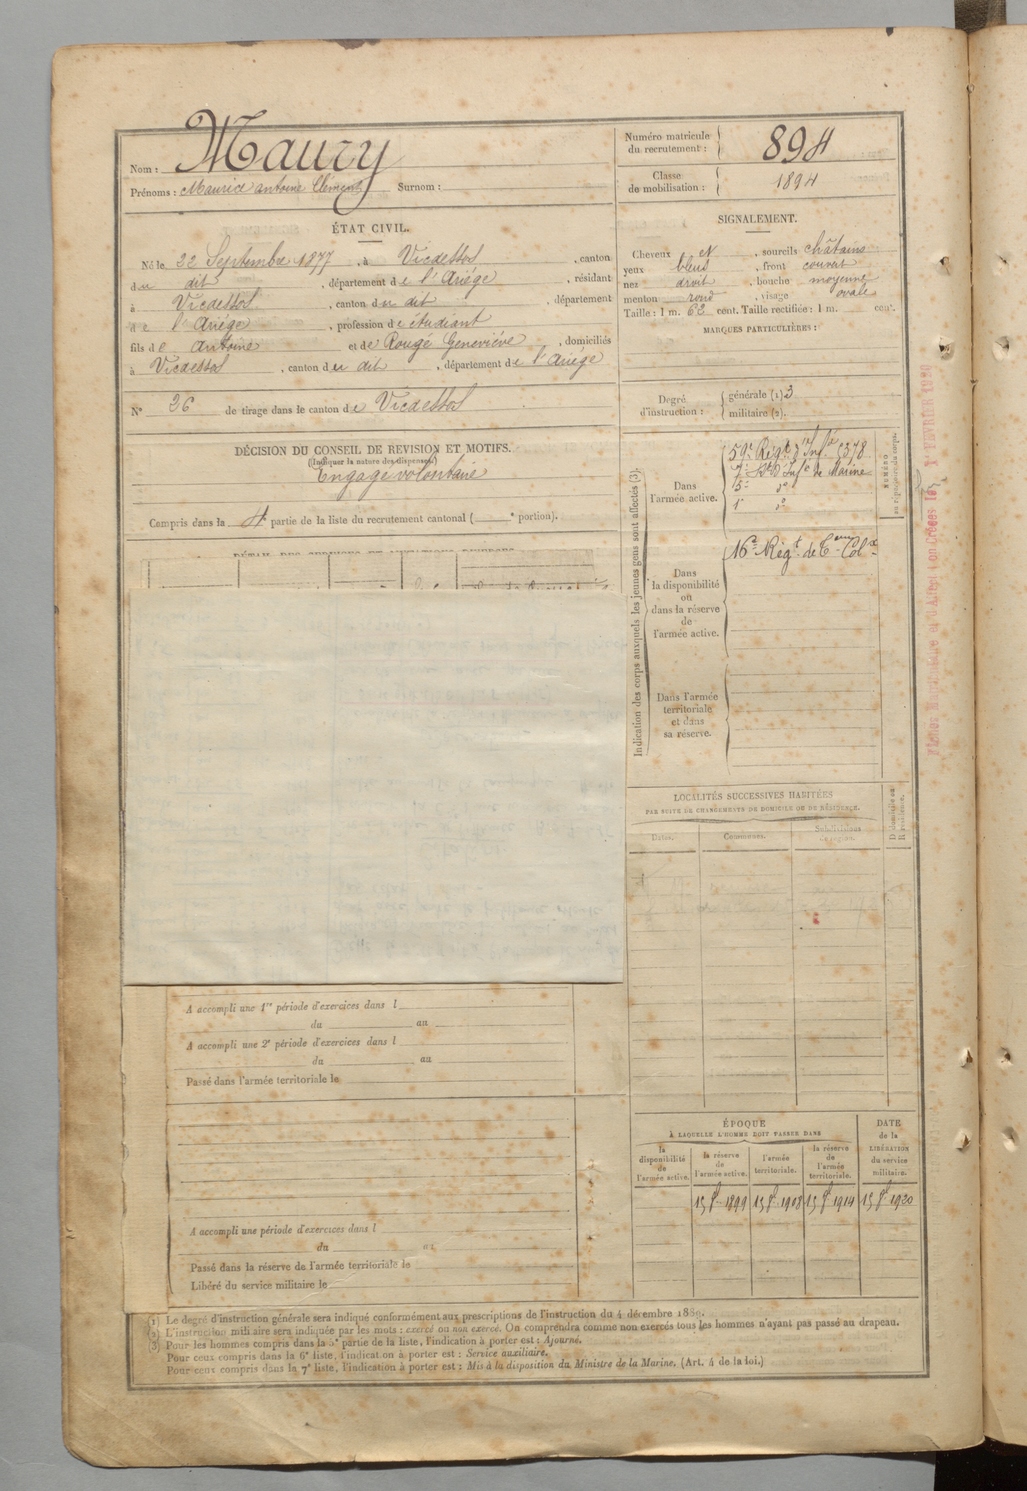 Nom : Maury
Prénoms : Maurice antoine Clément Surnom :
Numéro matricule du recrutement : 894
Classe de mobilisation : 1894
ÉTAT CIVIL.
Né le 22 Septembre 1877, à Vicdessos, canton
du dit, département de l'Ariége, résidant
à Vicdessos, canton du dit, département
de l'Ariége, profession de étudiant
fils de Antoine et de Rougé Geneviève, domiciliés
à Vicdessos, canton du dit, département de l'Ariége
N° 36 de tirage dans le canton de Vicdessos
DÉCISION DU CONSEIL DE REVISION ET MOTIFS.
(Indiquer la nature des dispenses)
Engagé volontaire
Compris dans la 4 partie de la liste du recrutement cantonal ( ° portion).
DÉTAIL DES SERVICES ET MUTATIONS DIVERSES
SIGNALEMENT.
Cheveux et, sourcils châtains
yeux bleus, front couvert
nez droit, bouche moyenne
menton rond, visage ovale
Taille : 1 m. 62 cent. Taille rectifiée : 1 m. cent.
MARQUES PARTICULIÈRES :
Degré d'instruction :
générale (1) 3
militaire (2).
Indication des corps auxquels les jeunes gens sont affectés (3).
NUMÉRO
Dans l'armée active.
59e Régt d'Infie 5378
7e Infie de Marine
5e do
1e do
Dans la disponibilité ou dans la réserve de l'armée active.
16e Régt de
Dans l'armée territoriale et dans sa réserve.
LOCALITÉS SUCCESSIVES HABITÉES
PAR SUITE DE CHANGEMENTS DE DOMICILE OU DE RÉSIDENCE.
Dates.
Communes.
Subdivisions de région.
D. domicile ou R. résidence.
A accompli une 1re période d'exercices dans l
du au
A accompli une 2e période d'exercices dans l
du au
Passé dans l'armée territoriale le
A accompli une période d'exercices dans l
du au
Passé dans la réserve de l'armée territoriale le
Libéré du service militaire le
ÉPOQUE
À LAQUELLE L'HOMME DOIT PASSER DANS
la disponibilité de l'armée active.
la réserve de l'armée active.
l'armée territoriale.
la réserve de l'armée territoriale.
DATE de la LIBÉRATION du service militaire.
1899
1908
1914
1920
1er FÉVRIER 1920
(1) Le degré d'instruction générale sera indiqué conformément aux prescriptions de l'instruction du 4 décembre 1889.
(2) L'instruction militaire sera indiquée par les mots : exercé ou non exercé. On comprendra comme non exercés tous les hommes n'ayant pas passé au drapeau.
(3) Pour les hommes compris dans la 5e partie de la liste, l'indication à porter est : Ajourné.
Pour ceux compris dans la 6e liste, l'indication à porter est : Service auxiliaire.
Pour ceux compris dans la 7e liste, l'indication à porter est : Mis à la disposition du Ministre de la Marine. (Art. 4 de la loi.)